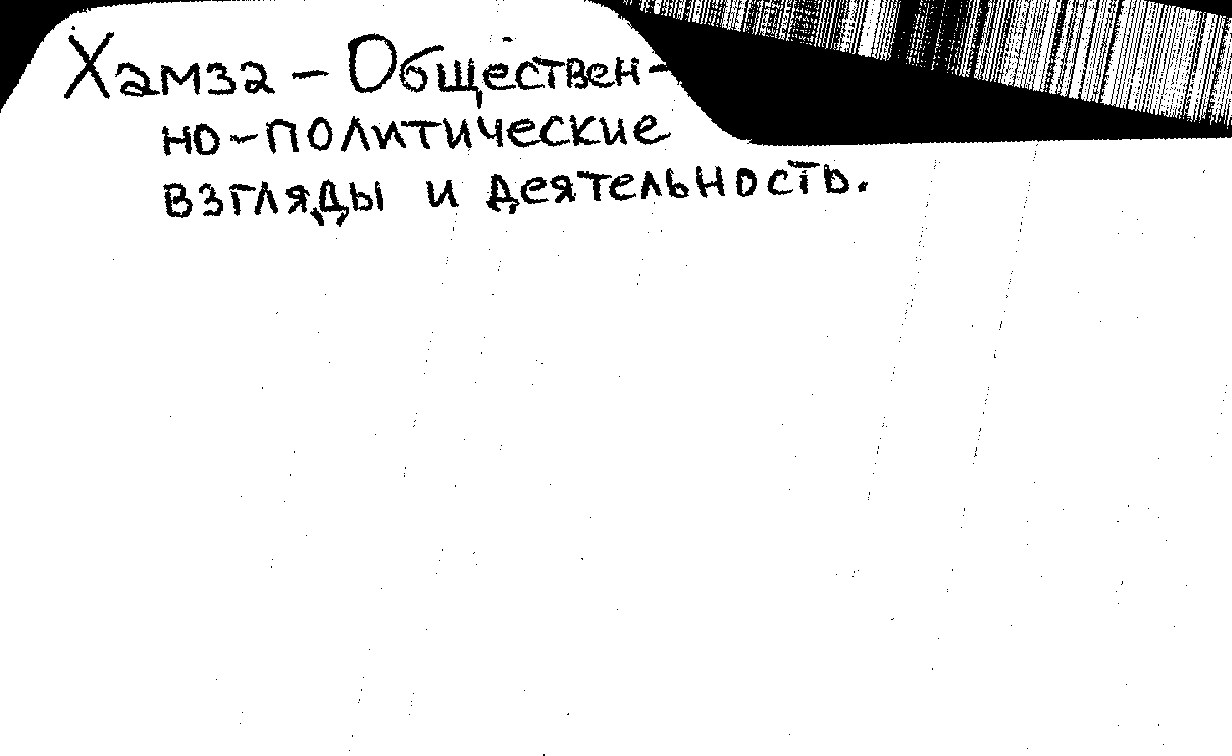 Хамза – Обществен-
но-политические
взгляды и деятельность.